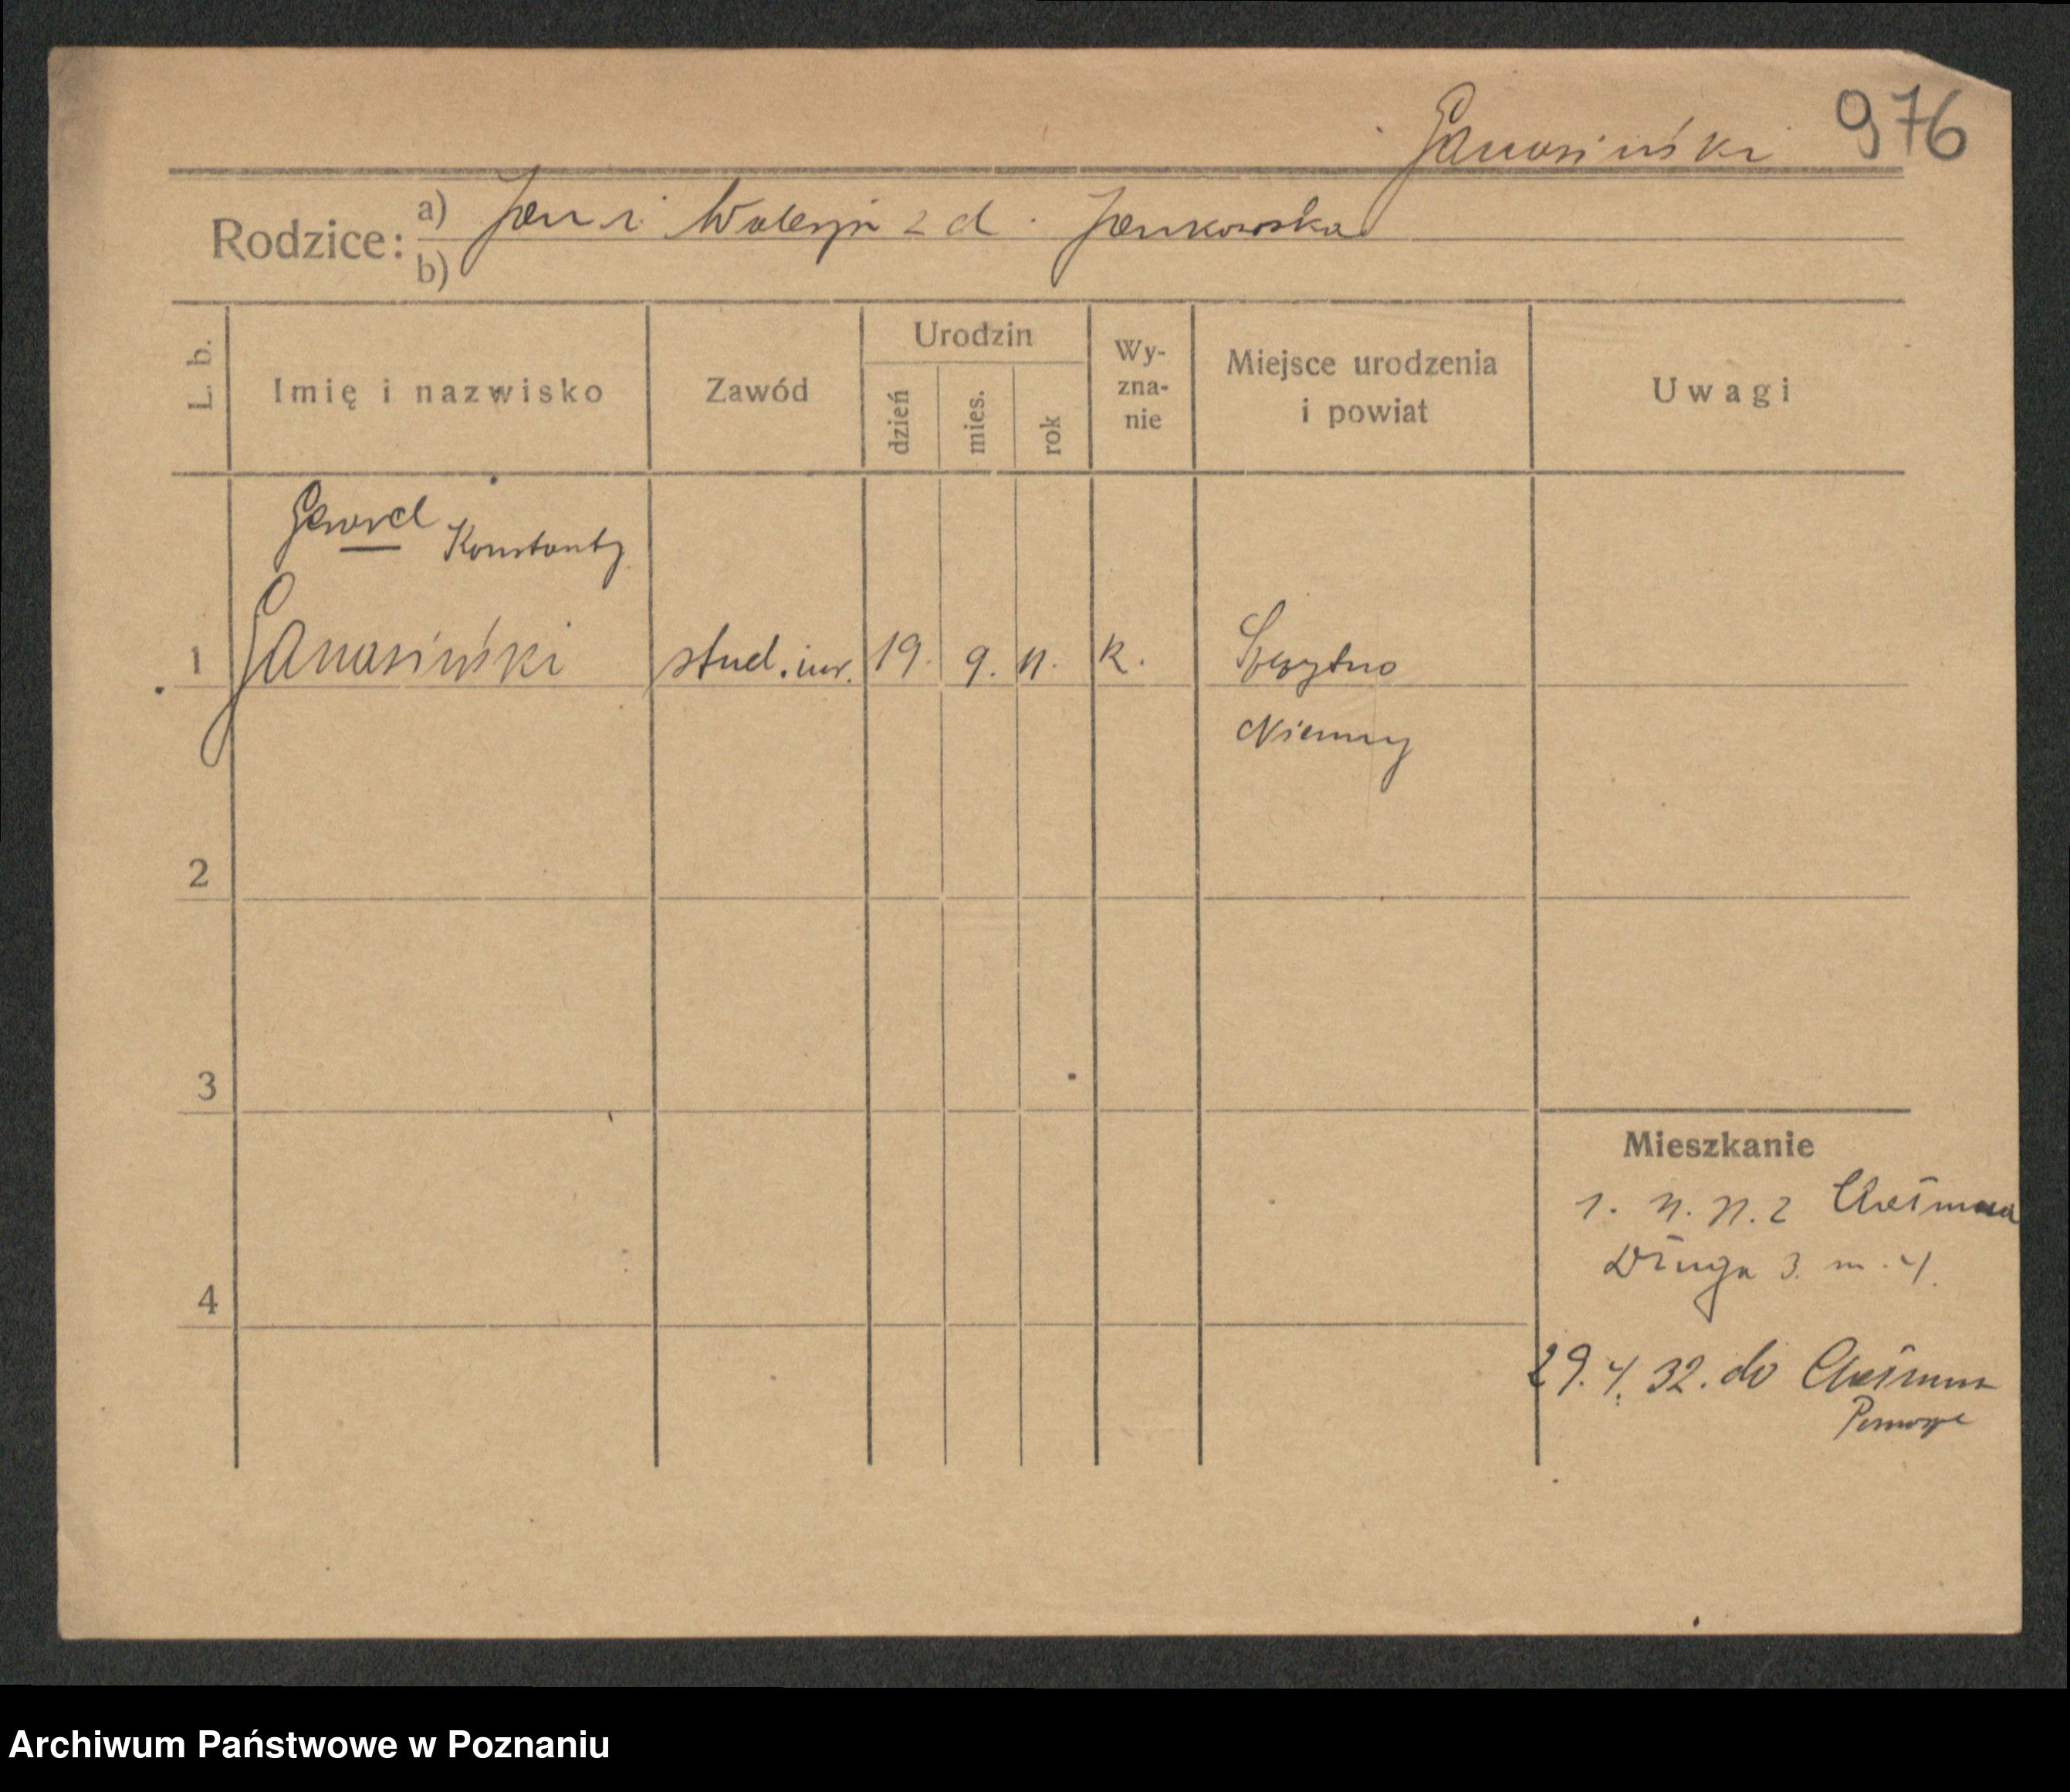 Ganasiński 976
Rodzice: a) Jan i Walerja z d. Jankowska
b)
L. b. Imię i nazwisko Zawód Urodzin dzień mies. rok Wy-zna-nie Miejsce urodzenia i powiat Uwagi
Gerard Konstanty
1 Ganasiński stud. iur. 19. 9. 11. k. Szczytno
Niemcy
2
3
Mieszkanie
1. 11. 11. z Chełmna
Długa 3. m. 4.
4
29. 4. 32. do Chełmna
Pomorze
Archiwum Państwowe w Poznaniu